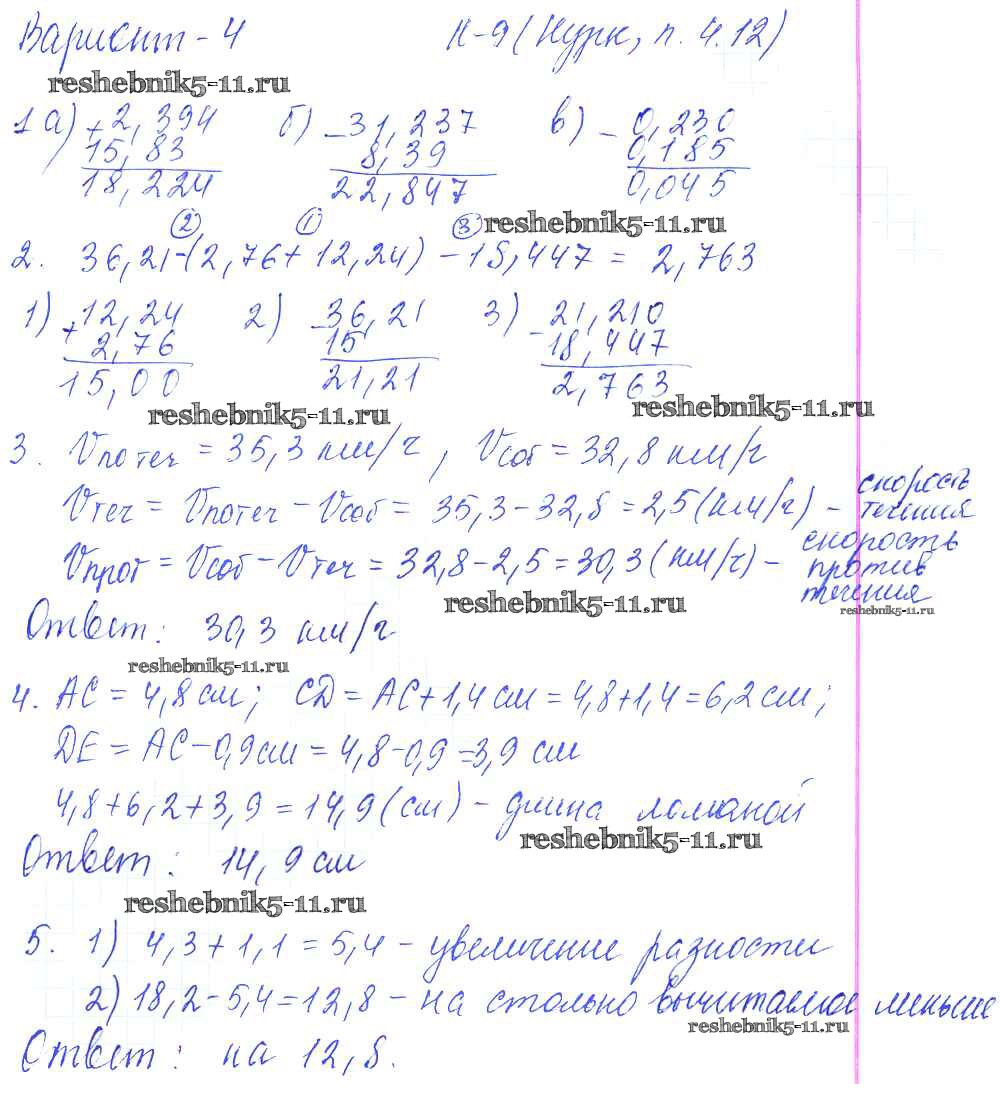 Вариант-4 К-9 (Нурк, п. 4.12)
reshebnik5-11.ru
1 а) +2,394 б) -31,237 в) -0,230
15,83 8,39 0,185
18,224 22,847 0,045
② ① ③ reshebnik5-11.ru
2. 36,21-(2,76+12,24)-18,447= 2,763
1) +12,24 2) -36,21 3) -21,210
2,76 15 18,447
15,00 21,21 2,763
reshebnik5-11.ru reshebnik5-11.ru
3. Vпотеч = 35,3 км/ч, Vсоб = 32,8 км/ч
Vтеч = Vпотеч - Vсоб = 35,3-32,8 = 2,5 (км/ч) - скорость течения
Vпрот = Vсоб - Vтеч = 32,8-2,5 = 30,3 (км/ч) - скорость против течения
reshebnik5-11.ru reshebnik5-11.ru
Ответ: 30,3 км/ч
reshebnik5-11.ru
4. AC = 4,8 см; CD = AC+1,4 см = 4,8+1,4 = 6,2 см;
DE = AC-0,9 см = 4,8-0,9 = 3,9 см
4,8+6,2+3,9 = 14,9 (см) - длина ломаной
reshebnik5-11.ru
Ответ: 14,9 см
reshebnik5-11.ru
5. 1) 4,3+1,1 = 5,4 - увеличение разности
2) 18,2-5,4 = 12,8 - на столько вычитаемое меньше
reshebnik5-11.ru
Ответ: на 12,8.